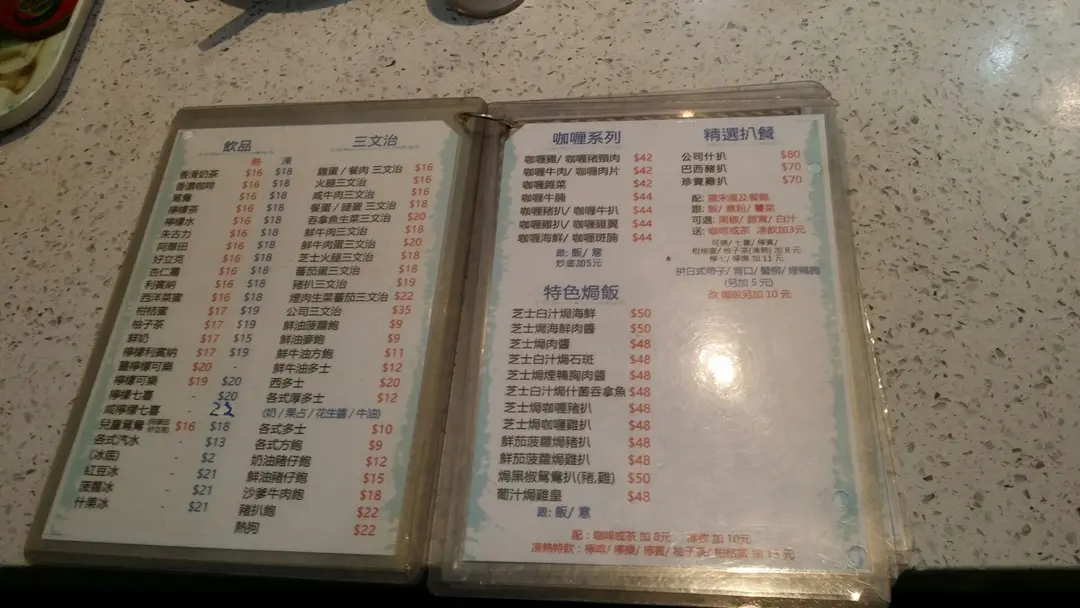 飲品
熱 凍
香滑奶茶 $16 $18
香濃咖啡 $16 $18
鴛鴦 $16 $18
檸檬茶 $16 $18
檸檬水 $16 $18
朱古力 $16 $18
阿華田 $16 $18
好立克 $16 $18
杏仁霜 $16 $18
利賓納 $16 $18
西洋菜蜜 $16 $18
柑桔蜜 $17 $19
柚子茶 $17 $19
鮮奶 $17 $15
檸檬利賓納 $17 $19
薑檸檬可樂 $20 -
檸檬可樂 $19 $20
檸檬七喜 - $20
咸檸檬七喜 22
兒童鴛鴦 $16 $18
各式汽水 - $13
(冰底) - $2
紅豆冰 - $21
菠蘿冰 - $21
什果冰 - $21
三文治
雞蛋/ 餐肉 三文治 $16
火腿三文治 $16
咸牛肉三文治 $16
餐蛋/ 腿蛋 三文治 $18
吞拿魚生菜三文治 $20
鮮牛肉三文治 $18
鮮牛肉蛋三文治 $20
芝士火腿三文治 $18
蕃茄蛋三文治 $18
豬扒三文治 $19
煙肉生菜蕃茄三文治 $22
公司三文治 $35
鮮油菠蘿飽 $9
鮮油麥飽 $9
鮮牛油方飽 $11
鮮牛油多士 $12
西多士 $20
各式厚多士 $12
(奶 / 果占 / 花生醬 / 牛油)
各式多士 $10
各式方飽 $9
奶油豬仔飽 $12
鮮油豬仔飽 $15
沙爹牛肉飽 $18
豬扒飽 $22
熱狗 $22
咖喱系列
咖喱雞/ 咖喱豬頸肉 $42
咖喱牛肉/ 咖喱肉片 $42
咖喱雜菜 $42
咖喱牛腩 $44
咖喱豬扒/ 咖喱牛扒 $44
咖喱雞扒/ 咖喱雞翼 $44
咖喱海鮮/ 咖喱斑腩 $44
跟: 飯/ 意
炒底加5元
特色焗飯
芝士白汁焗海鮮 $50
芝士焗海鮮肉醬 $50
芝士焗肉醬 $48
芝士白汁焗石斑 $48
芝士焗煙鴨胸肉醬 $48
芝士白汁焗什菌吞拿魚 $48
芝士焗咖喱豬扒 $48
芝士焗咖喱雞扒 $48
鮮茄菠蘿焗豬扒 $48
鮮茄菠蘿焗雞扒 $48
焗黑椒鴛鴦扒(豬,雞) $50
葡汁焗雞皇 $48
跟: 飯/ 意
精選扒餐
公司什扒 $80
巴西豬扒 $70
珍寶雞扒 $70
配: 羅宋湯及餐飽
跟: 飯/ 意粉/ 薯菜
可選: 黑椒/ 蒜茸/ 白汁
送: 咖啡或茶 凍飲加3元
可樂/ 七喜/ 檸賓/
柑桔蜜/ 柚子茶(凍熱) 加 8 元
檸七/ 檸樂 加 11 元
拼日式帶子/ 青口/ 蟹柳/ 煙鴨胸
(另加 5 元)
改 焗飯另加 10 元
配 : 咖啡或茶 加 8元 凍飲 加 10元
凍熱特飲 : 檸啡/ 檸樂/ 檸賓/ 柚子茶/ 柑桔蜜 加 13 元